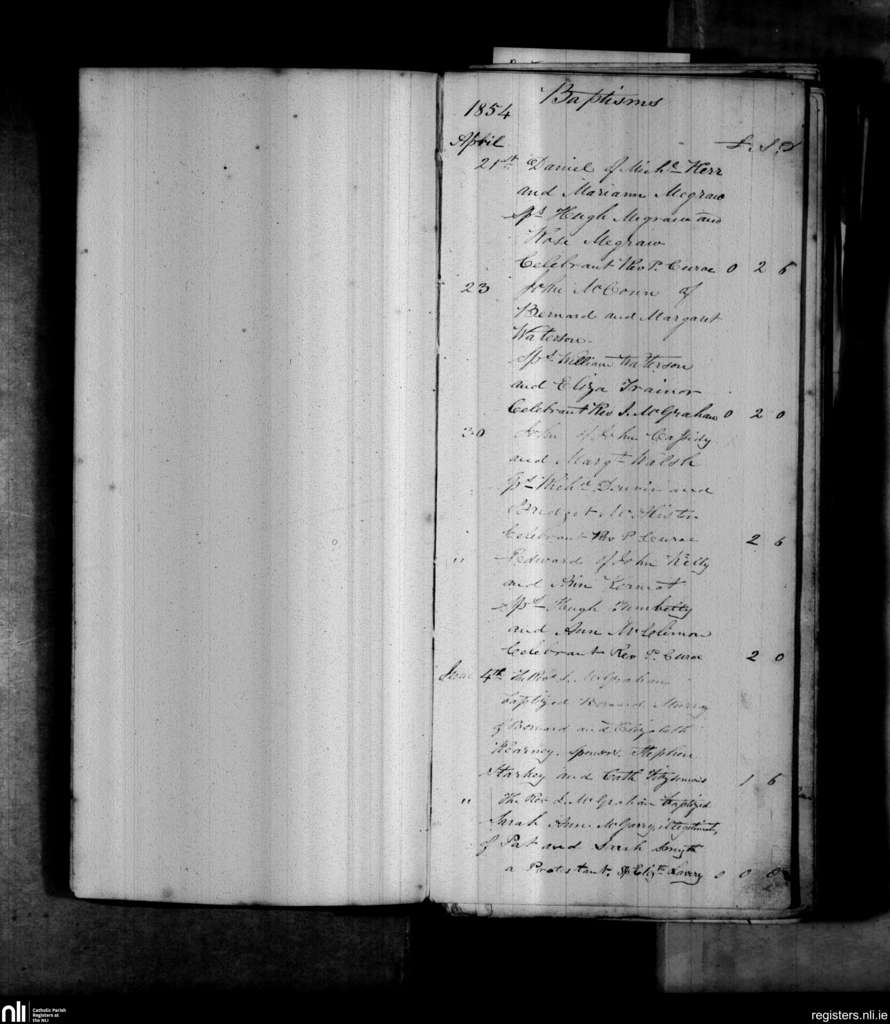 Baptisms
1854
April £. S. D
21st Daniel of Michl Kerr
and Mariann Megraw
Sps Hugh Megraw and
Rose Megraw
Celebrant Rev P. Curoe 0 2 6
23 John McConn of
Bernard and Margaret
Waterson
Sps William Waterson
and Eliza Trainor
Celebrant Rev J. McGrahan 0 2 0
30 John of John Cassidy
and Margt Walsh
Sps Michl and
Bridget
Celebrant Rev P Curoe 2 6
" Edward of John Kelly
and Ann
Sps Hugh
and Ann
Celebrant Rev P. Curoe 2 0
June 4th The Rev J. McGrahan
baptized Bernard
of Bernard and Elizabeth
Kearney. Sponsors. Stephen
Starkey and Cath Fitzsimmons 1 6
" The Rev J. McGrahan baptized
Sarah Ann McGarry illegitimate
of Pat and Sarah Smyth
a Protestant. Sp Elizth Lavery 0 0 0
nli
Catholic Parish
Registers at
the NLI
registers.nli.ie